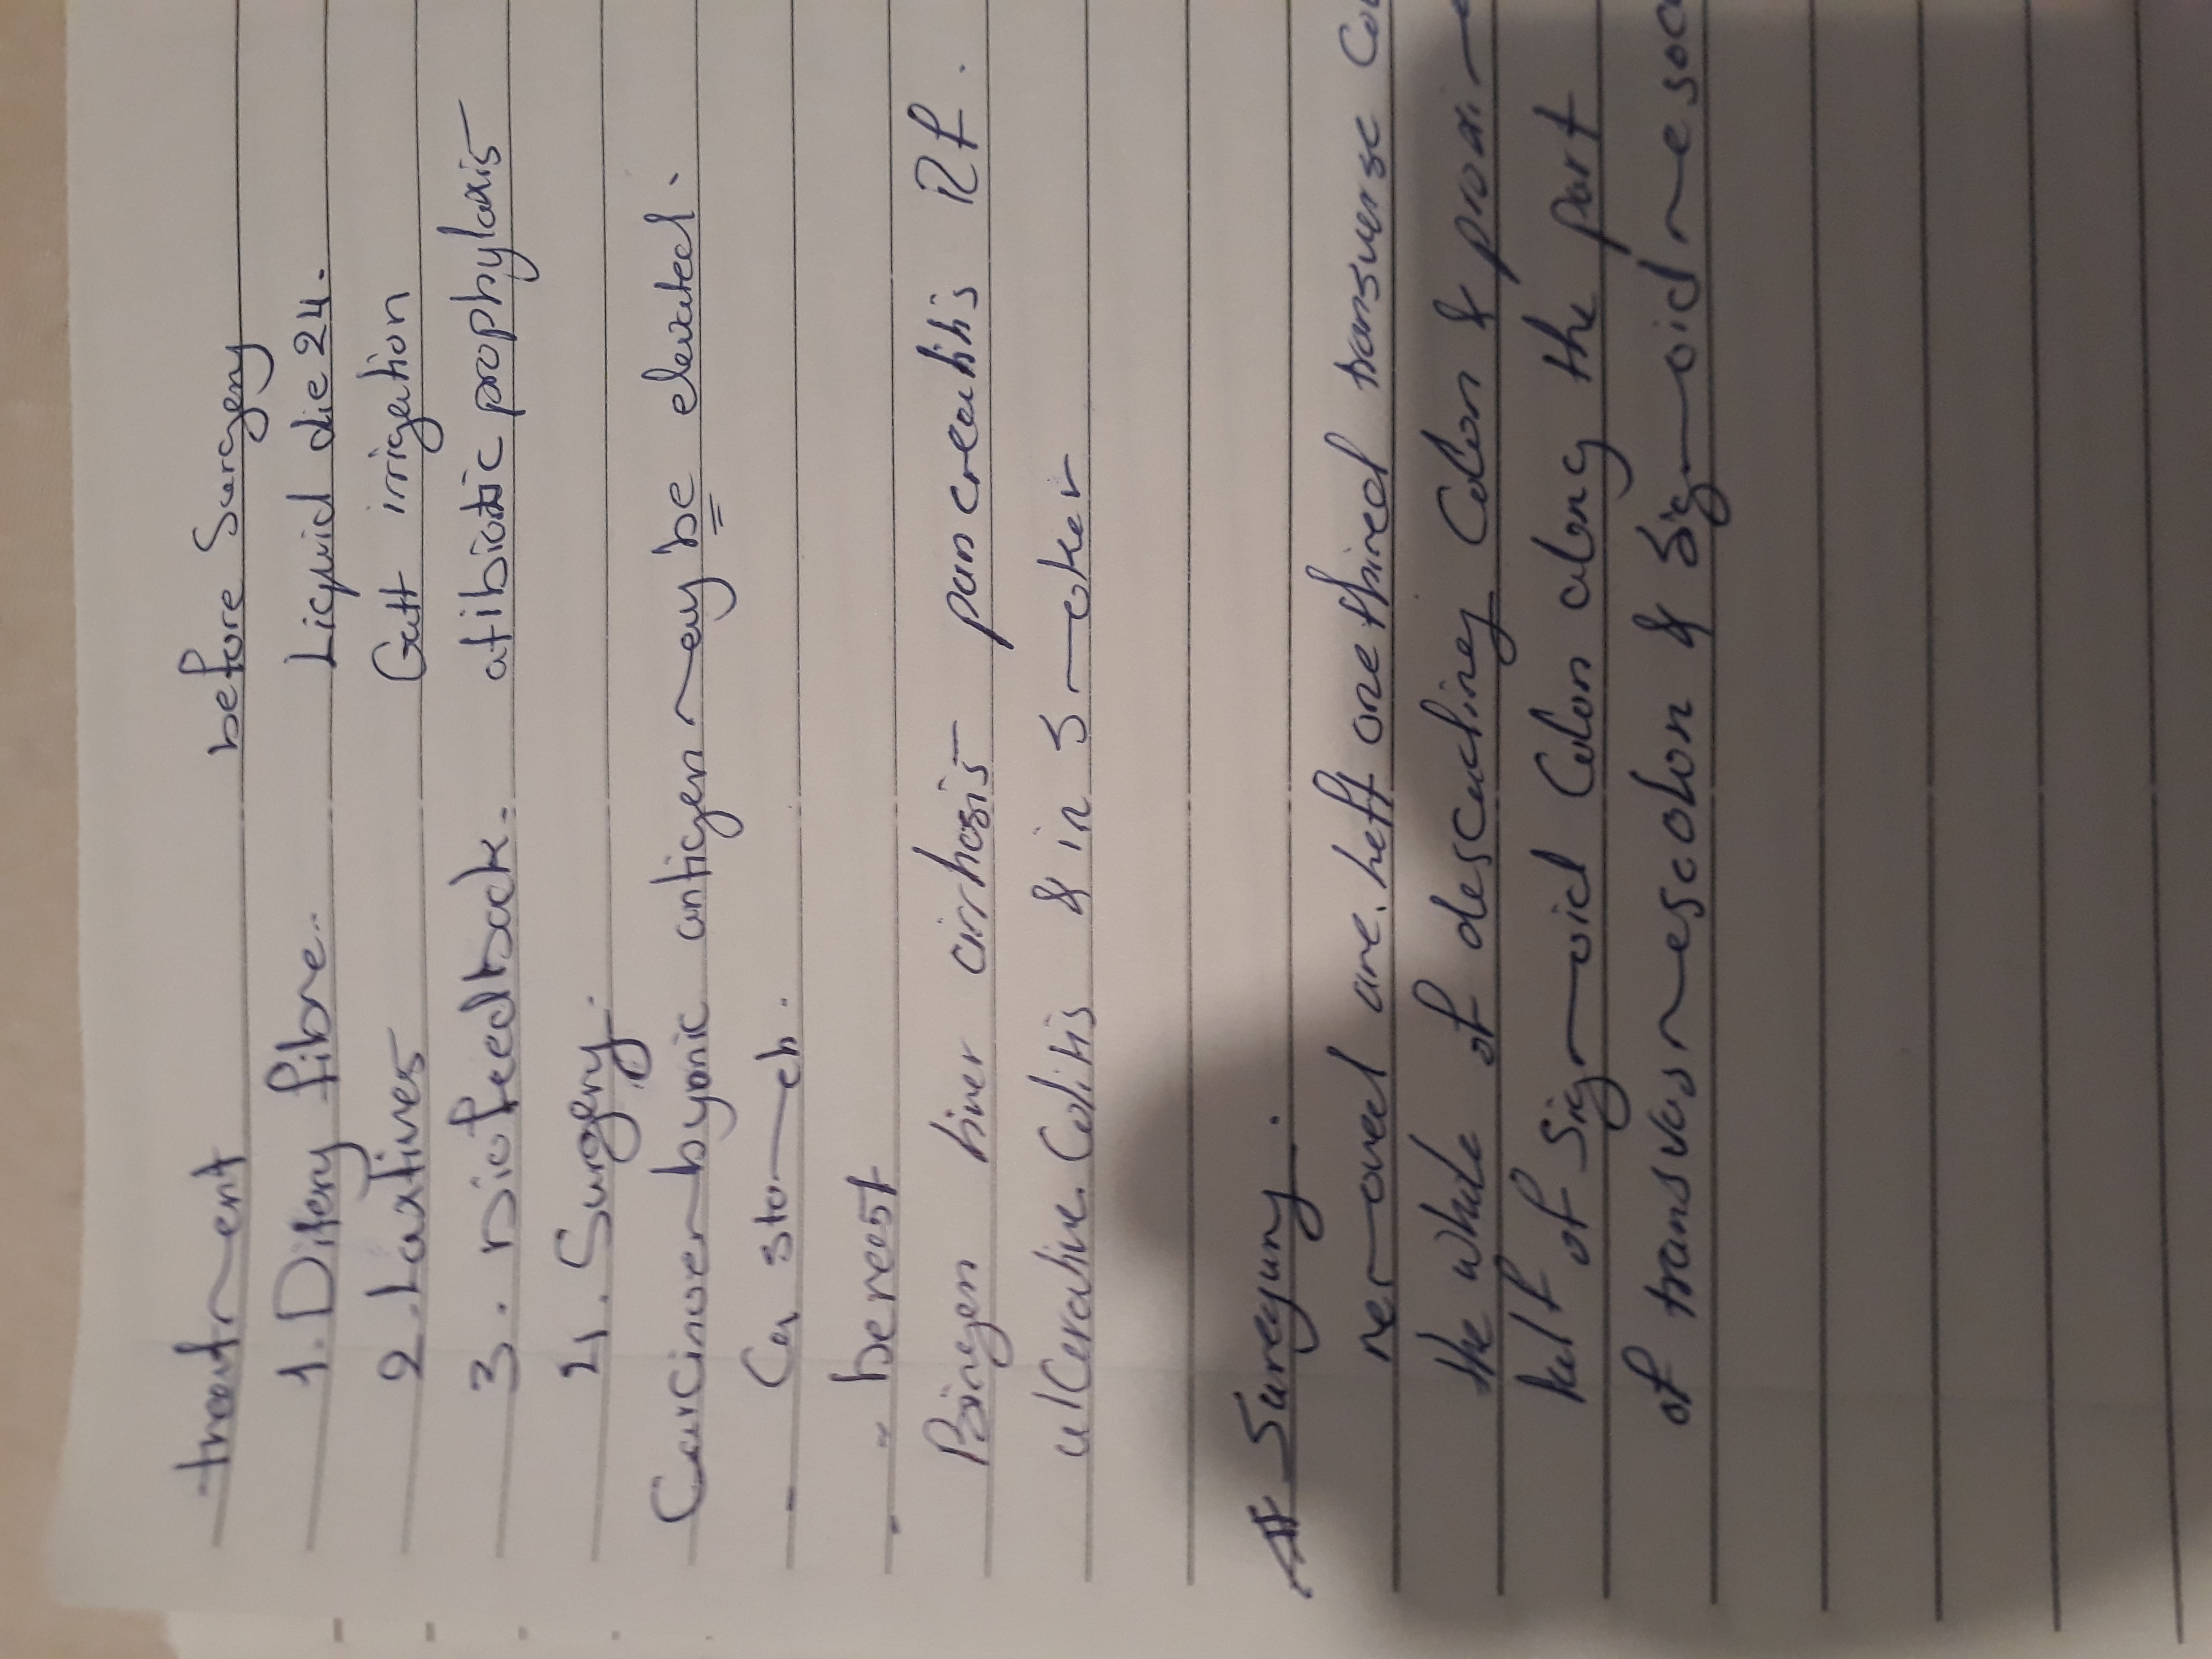 treatment before Suregery
1. Ditery fibre. Liquid die 24.
2. Laxtives Gutt irrigation
3. Biofeedback. atibiotic prophylaxis
4. Surgery.
Carcinoembyonic antigen may be elevated.
- Ca stomach.
- " berest
Bingen liver cirrhosis pancreatitis Rf.
ulcerative Colitis & in Smoker
# Suregury.
removed are. left one thired transverse
the whole of descending Colon &
half of Sigmoid Colon along the part
of transvesmesocolon & Sigmoid